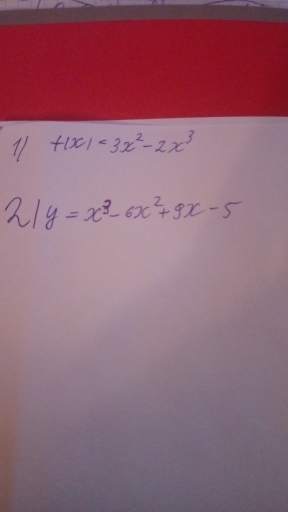 1) f(x) = 3x² - 2x³
2) y = x³ - 6x² + 9x - 5